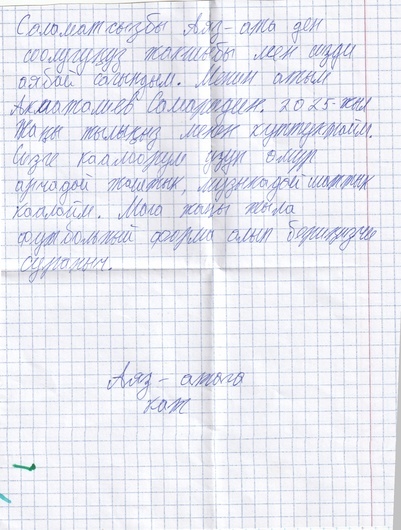 Саламатсызбы Аяз-ата ден
соолугунуз жакшыбы мен сизди
аябай сагындым. Менин атым
Акматалиев Самаржден. 2025-жыл
Жаңы жылыңыз менен куттуктайм.
Сизге каалоорум узун өмүр
арчадай жаштык, музыкадай шаттык
каалайм. Мага жаңы жылга
футбольный форма алып бериңизчи
сураныч.
Аяз-атага
кат